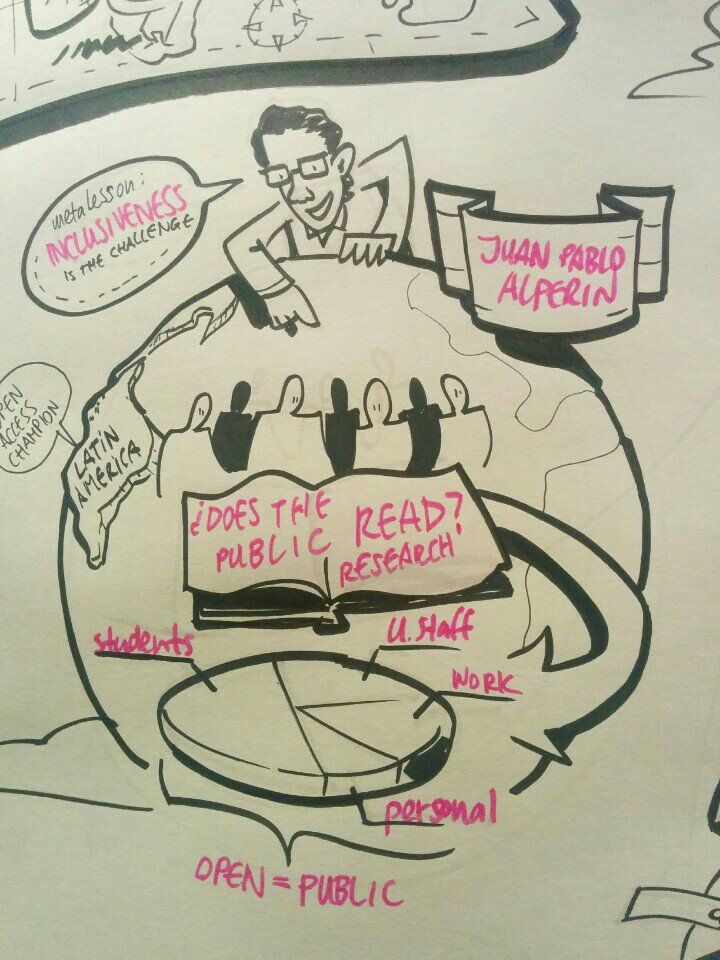 metalesson:
INCLUSIVENESS
IS THE CHALLENGE
JUAN PABLO
ALPERIN
OPEN
ACCESS
CHAMPION
LATIN
AMERICA
¿DOES THE
PUBLIC
READ?
RESEARCH
students
U. Staff
WORK
personal
OPEN = PUBLIC